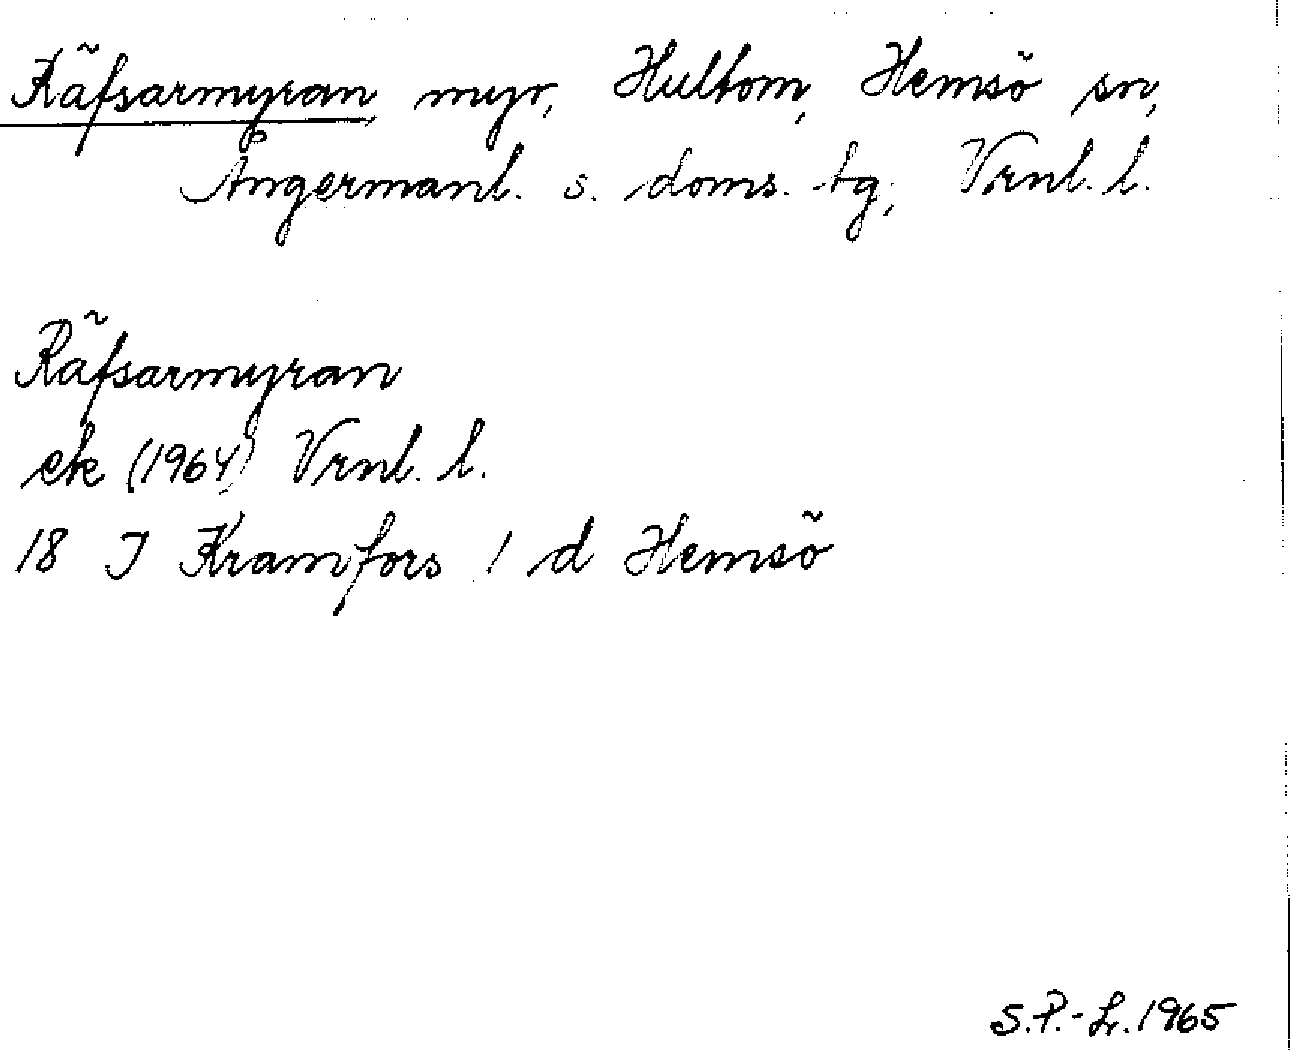 Räfsarmyran myr, Hultom, Hemsö sn,
Ångermanl. s. doms. tg, Vrnl. l.
Räfsarmyran
ek (1964) Vrnl. l.
18 I Kramfors 1 d Hemsö
S.P.-Lr. 1965